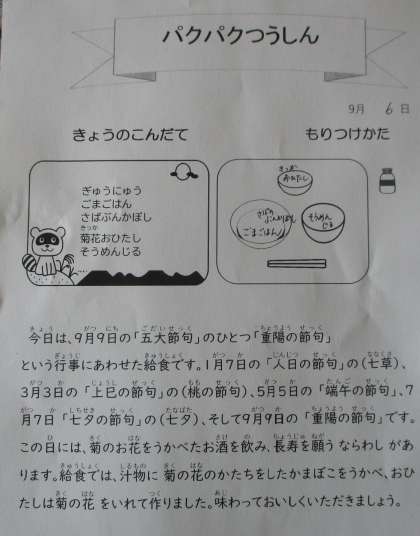 パクパクつうしん
9月 6日
きょうのこんだて
もりつけかた
ぎゅうにゅう
ごまごはん
さばぶんかぼし
きっか
菊花おひたし
そうめんじる
きっか
おひたし
さばの
ぶんかぼし
ごまごはん
そうめん
じる
今日は、9月9日の「五大節句」のひとつ「重陽の節句」
という行事にあわせた給食です。1月7日の「人日の節句」の(七草)、
3月3日の「上巳の節句」の(桃の節句)、5月5日の「端午の節句」、7
月7日「七夕の節句」の(七夕)、そして9月9日の「重陽の節句」です。
この日には、菊のお花をうかべたお酒を飲み、長寿を願う ならわしがあ
ります。給食では、汁物に 菊の花のかたちをしたかまぼこをうかべ、おひ
たしは菊の花 をいれて作りました。味わっておいしくいただきましょう。